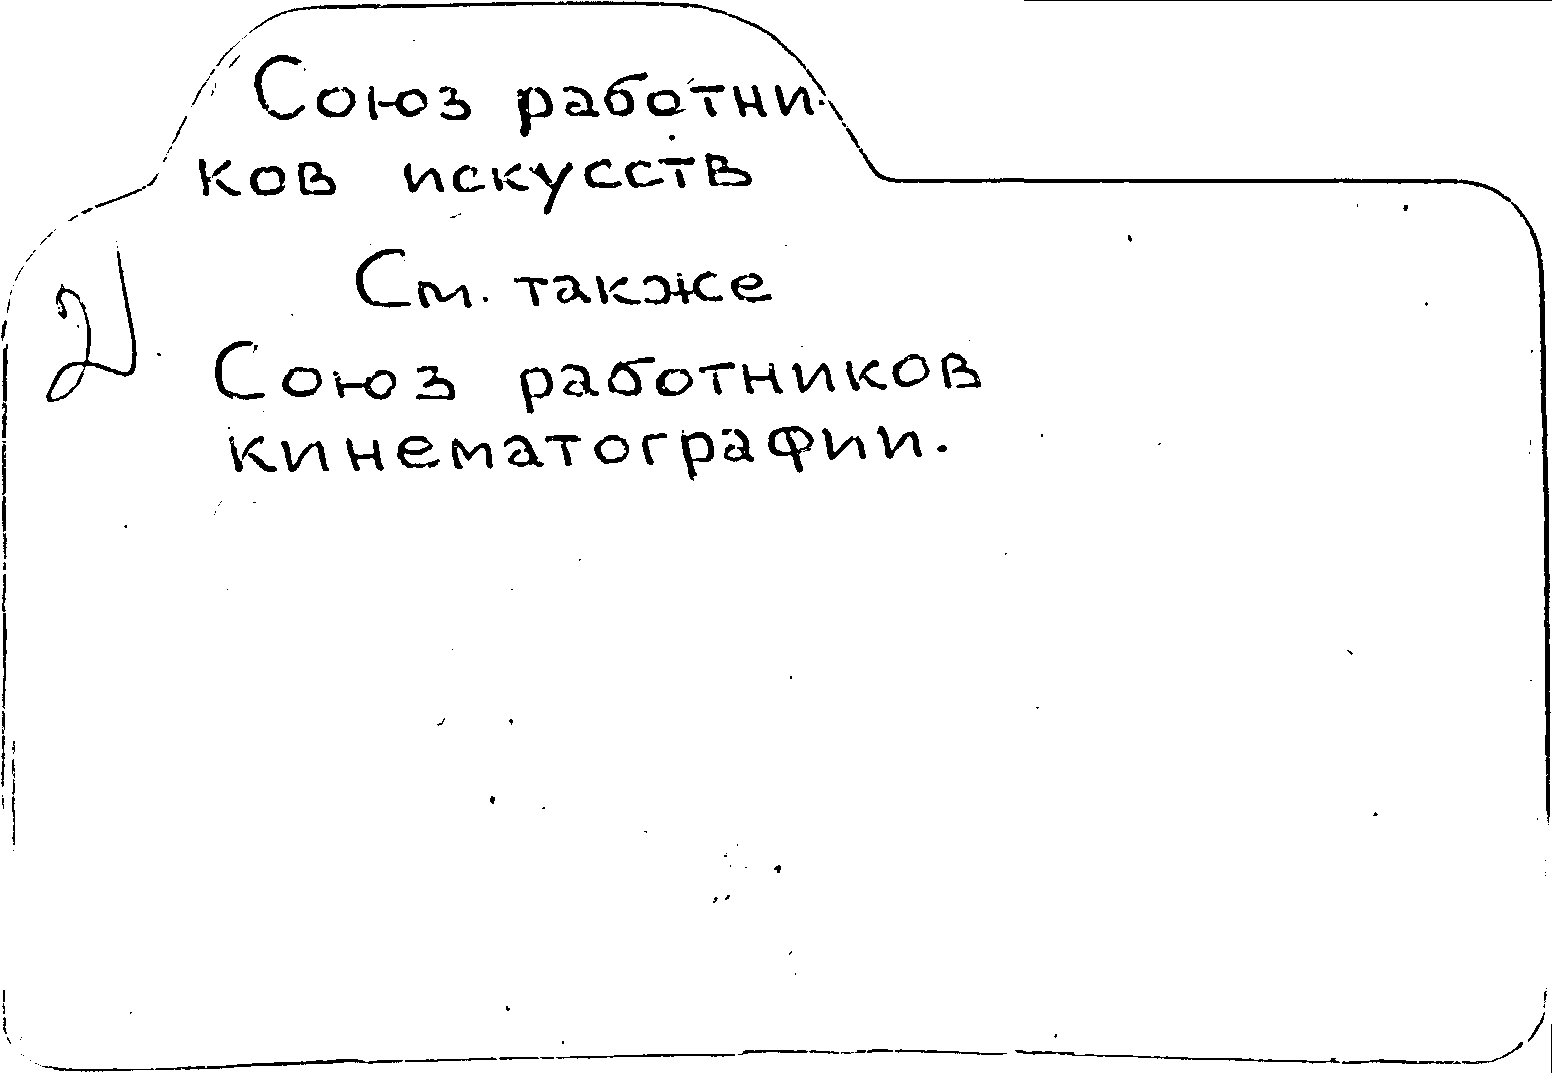 Союз работни-
ков искусств
См. также
Союз работников
кинематографии.